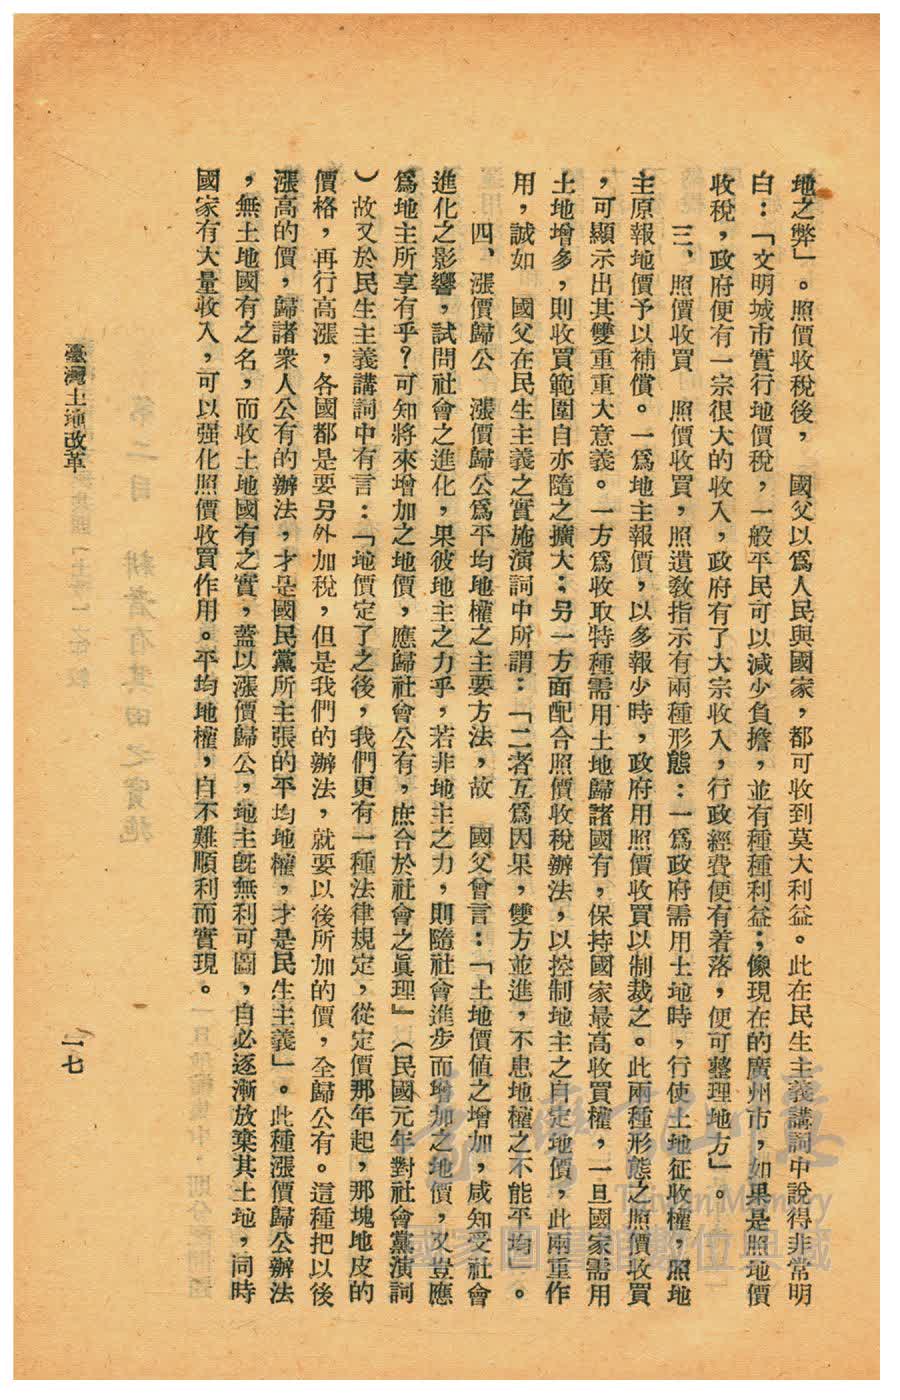 地之弊」。照價收稅後，　國父以爲人民與國家，都可收到莫大利益。此在民生主義講詞中說得非常明
白：「文明城市實行地價稅，一般平民可以減少負擔，並有種種利益；像現在的廣州市，如果是照地價
收稅，政府便有一宗很大的收入，政府有了大宗收入，行政經費便有着落，便可整理地方」。
三、照價收買　照價收買，照遺敎指示有兩種形態：一爲政府需用土地時，行使土地征收權，照地
主原報地價予以補償。一爲地主報價，以多報少時，政府用照價收買以制裁之。此兩種形態之照價收買
，可顯示出其雙重重大意義。一方爲收取特種需用土地歸諸國有，保持國家最高收買權，一旦國家需用
土地增多，則收買範圍自亦隨之擴大；另一方面配合照價收稅辦法，以控制地主之自定地價，此兩重作
用，誠如　國父在民生主義之實施演詞中所謂：「二者互爲因果，雙方並進，不患地權之不能平均」。
四、漲價歸公　漲價歸公爲平均地權之主要方法，故　國父曾言：「土地價值之增加，咸知受社會
進化之影響，試問社會之進化，果彼地主之力乎，若非地主之力，則隨社會進步而增加之地價，又豈應
爲地主所享有乎？可知將來增加之地價，應歸社會公有，庶合於社會之眞理』（民國元年對社會黨演詞
）故又於民生主義講詞中有言：「地價定了之後，我們更有一種法律規定，從定價那年起，那塊地皮的
價格，再行高漲，各國都是要另外加稅，但是我們的辦法，就要以後所加的價，全歸公有。這種把以後
漲高的價，歸諸衆人公有的辦法，才是國民黨所主張的平均地權，才是民生主義」。此種漲價歸公辦法
，無土地國有之名，而收土地國有之實，蓋以漲價歸公，地主旣無利可圖，自必逐漸放棄其土地，同時
國家有大量收入，可以强化照價收買作用。平均地權，自不難順利而實現。
臺灣土地改革
一七
臺灣記憶
Taiwan Memory
國家圖書館數位典藏